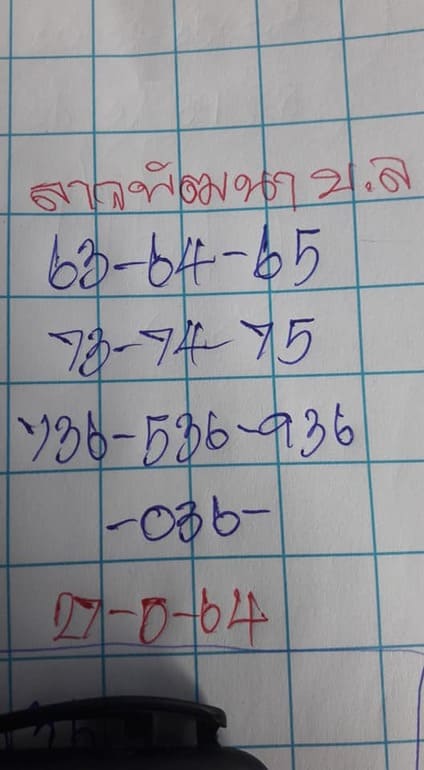 ลาวพัฒนา บ.ล
63-64-65
73-74-75
736-536-936
-036-
27-0-64